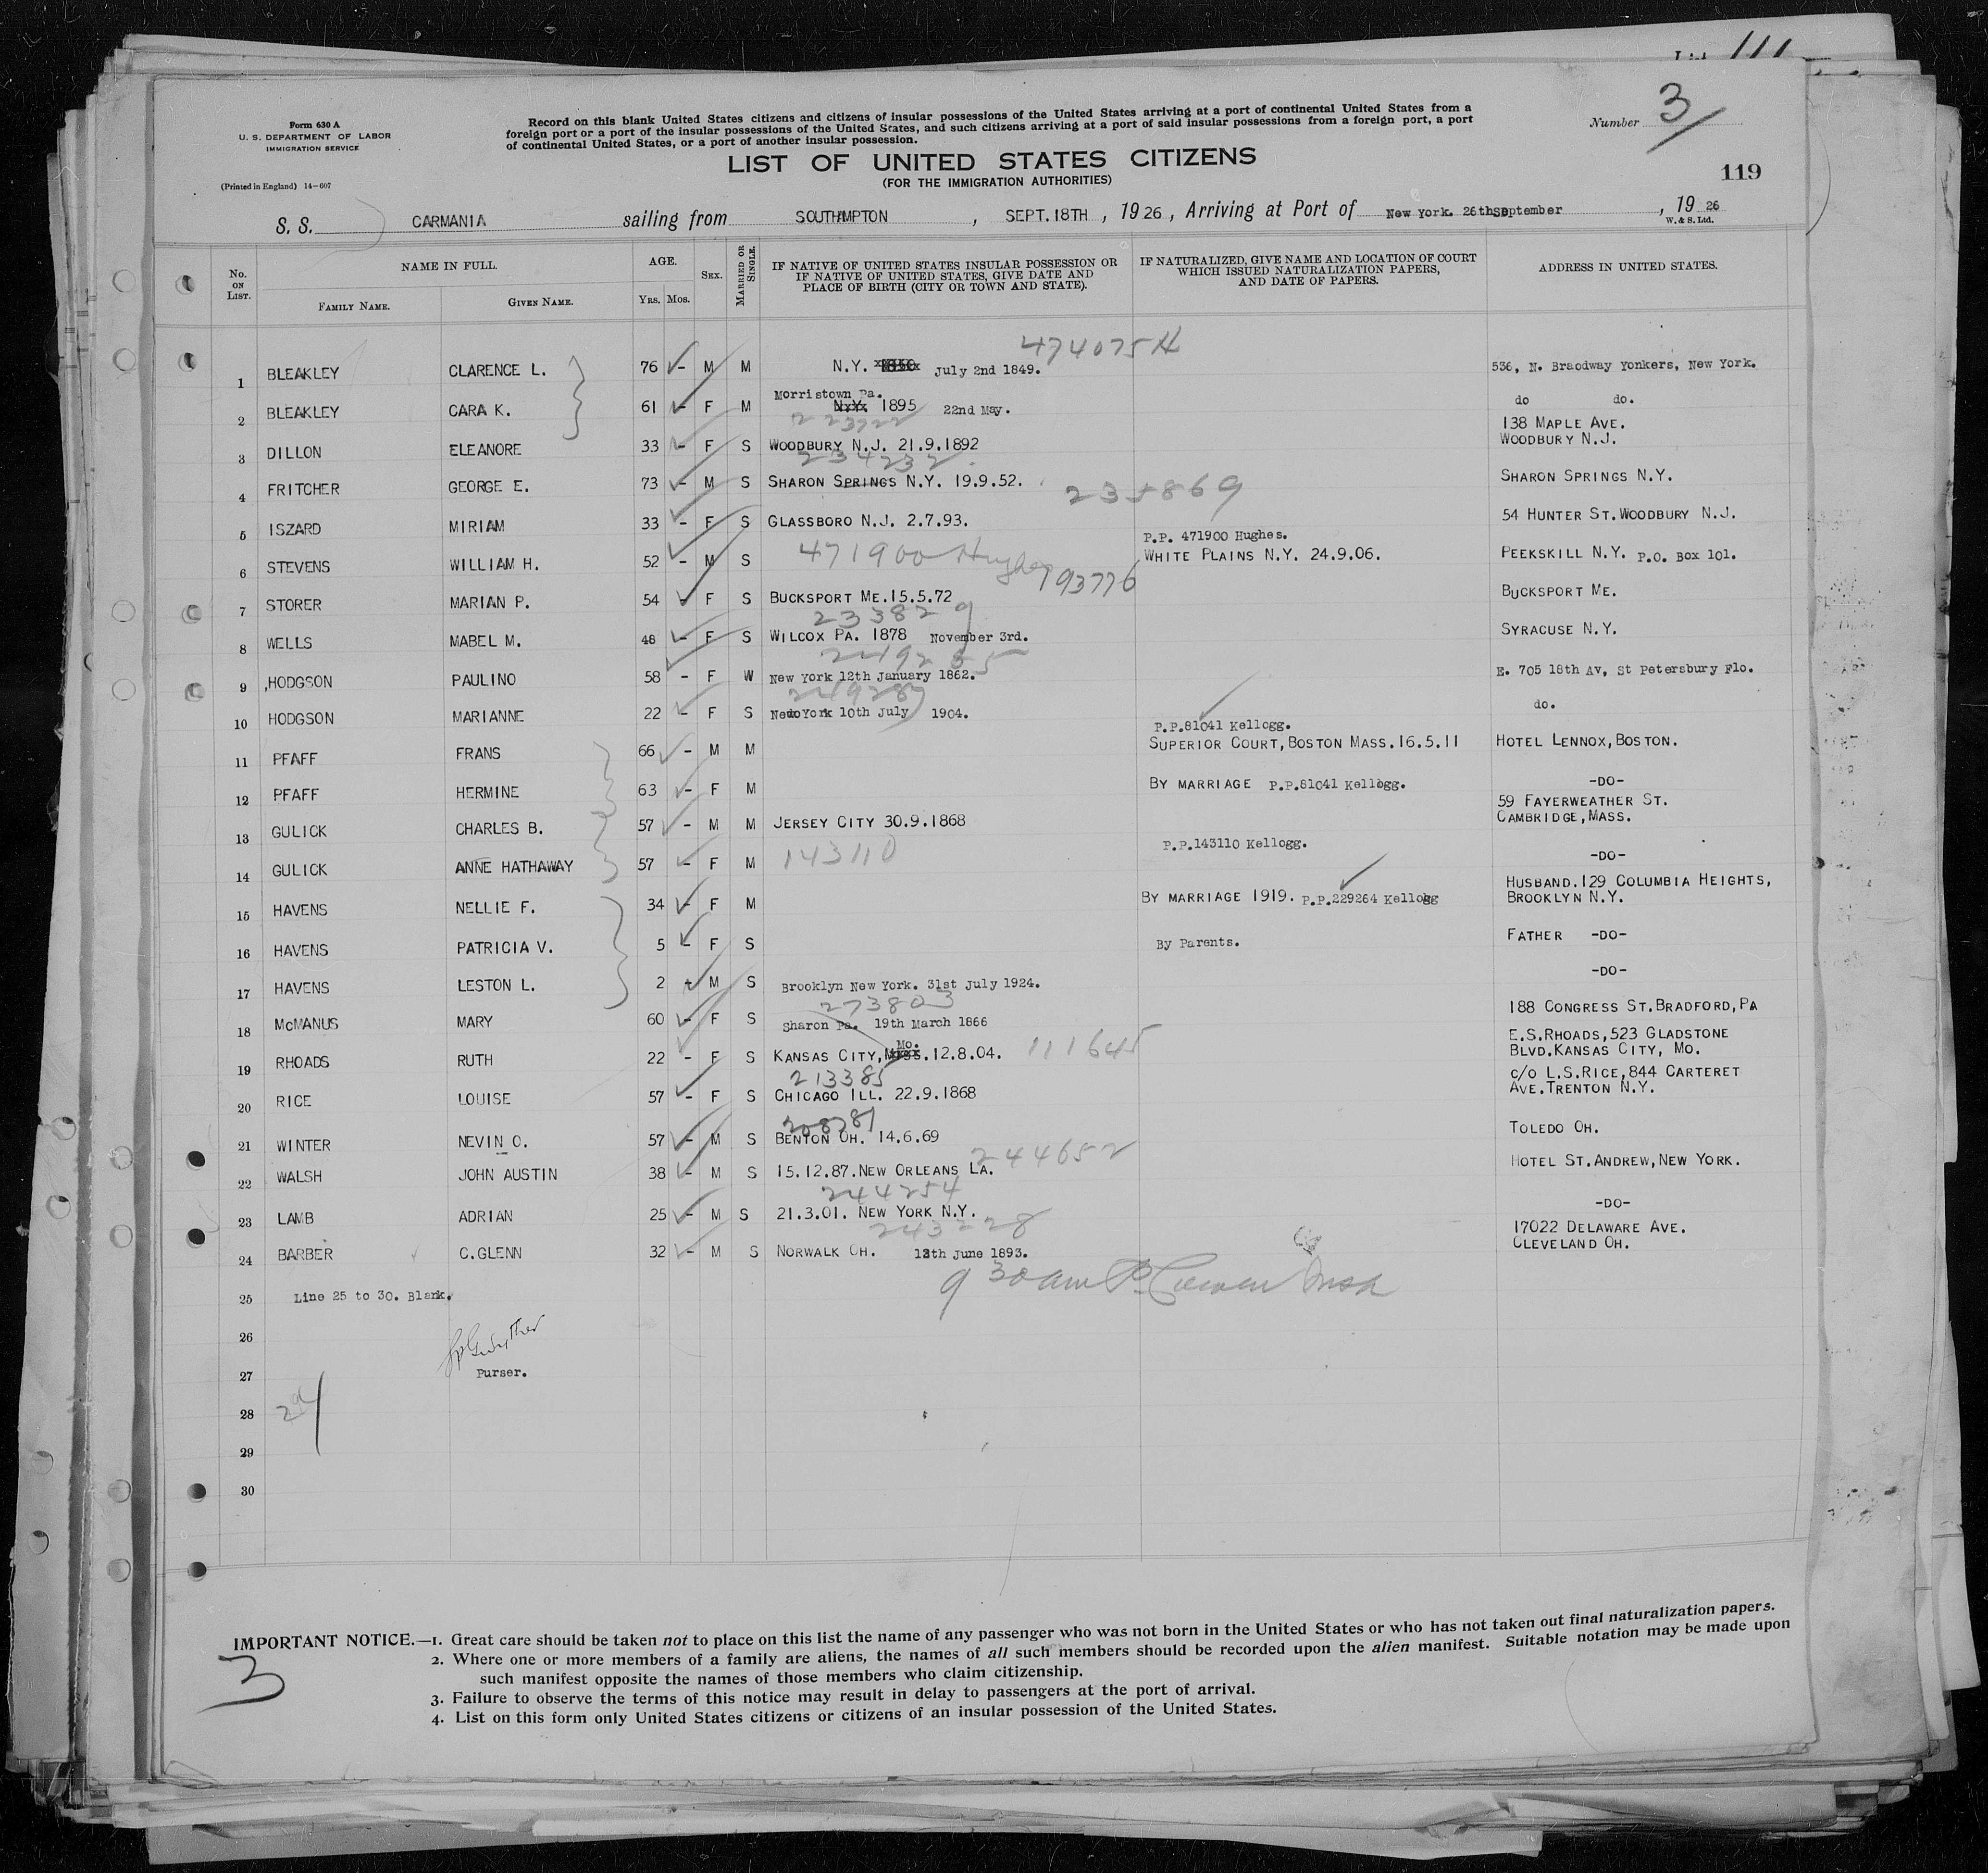 111
Form 630 A
U. S. DEPARTMENT OF LABOR
IMMIGRATION SERVICE
(Printed in England) 14—607
Record on this blank United States citizens and citizens of insular possessions of the United States arriving at a port of continental United States from a
foreign port or a port of the insular possessions of the United States, and such citizens arriving at a port of said insular possessions from a foreign port, a port
of continental United States, or a port of another insular possession.
Number 3
LIST OF UNITED STATES CITIZENS
(FOR THE IMMIGRATION AUTHORITIES)
119
S. S. CARMANIA sailing from SOUTHAMPTON, SEPT.18TH, 1926, Arriving at Port of New York. 26th September, 1926
W. & S. Ltd.
No. ON LIST. NAME IN FULL. FAMILY NAME. GIVEN NAME. AGE. YRS. MOS. SEX. MARRIED OR SINGLE. IF NATIVE OF UNITED STATES INSULAR POSSESSION OR IF NATIVE OF UNITED STATES, GIVE DATE AND PLACE OF BIRTH (CITY OR TOWN AND STATE). IF NATURALIZED, GIVE NAME AND LOCATION OF COURT WHICH ISSUED NATURALIZATION PAPERS, AND DATE OF PAPERS. ADDRESS IN UNITED STATES.
474075 H
1 BLEAKLEY CLARENCE L. 76 - M M N.Y. July 2nd 1849. 536, N. Braodway Yonkers, New York.
Morristown Pa.
2 BLEAKLEY CARA K. 61 - F M N.Y. 1895 22nd May. do do.
223722
138 MAPLE AVE.
3 DILLON ELEANORE 33 - F S WOODBURY N.J. 21.9.1892 WOODBURY N.J.
234232
4 FRITCHER GEORGE E. 73 - M S SHARON SPRINGS N.Y. 19.9.52. SHARON SPRINGS N.Y.
235869
5 ISZARD MIRIAM 33 - F S GLASSBORO N.J. 2.7.93. 54 HUNTER ST. WOODBURY N.J.
P.P. 471900 Hughes.
6 STEVENS WILLIAM H. 52 - M S 471900 Hughes WHITE PLAINS N.Y. 24.9.06. PEEKSKILL N.Y. P.O. BOX 101.
193776
7 STORER MARIAN P. 54 - F S BUCKSPORT ME. 15.5.72 BUCKSPORT ME.
233829
8 WELLS MABEL M. 48 - F S WILCOX PA. 1878 November 3rd. SYRACUSE N.Y.
249285
9 HODGSON PAULINO 58 - F W New York 12th January 1862. E. 705 18th Av, St Petersbury Flo.
249287
10 HODGSON MARIANNE 22 - F S New York 10th July 1904. do.
P.P.81041 Kellogg.
11 PFAFF FRANS 66 - M M SUPERIOR COURT, BOSTON MASS. 16.5.11 HOTEL LENNOX, BOSTON.
12 PFAFF HERMINE 63 - F M BY MARRIAGE P.P.81041 Kellogg. -DO-
59 FAYERWEATHER ST.
13 GULICK CHARLES B. 57 - M M JERSEY CITY 30.9.1868 CAMBRIDGE, MASS.
P.P.143110 Kellogg.
14 GULICK ANNE HATHAWAY 57 - F M 143110 -DO-
HUSBAND. 129 COLUMBIA HEIGHTS,
15 HAVENS NELLIE F. 34 - F M BY MARRIAGE 1919. P.P.229264 Kellogg BROOKLYN N.Y.
16 HAVENS PATRICIA V. 5 - F S By Parents. FATHER -DO-
17 HAVENS LESTON L. 2 - M S Brooklyn New York. 31st July 1924. -DO-
273803
18 McMANUS MARY 60 - F S Sharon Pa. 19th March 1866 188 CONGRESS ST. BRADFORD, PA
E.S.RHOADS, 523 GLADSTONE
19 RHOADS RUTH 22 - F S KANSAS CITY, Mo. 12.8.04. 111645 BLVD. KANSAS CITY, MO.
213385
c/o L.S.RICE, 844 CARTERET
20 RICE LOUISE 57 - F S CHICAGO ILL. 22.9.1868 AVE. TRENTON N.Y.
208781
21 WINTER NEVIN O. 57 - M S BENTON OH. 14.6.69 TOLEDO OH.
244652
22 WALSH JOHN AUSTIN 38 - M S 15.12.87. NEW ORLEANS LA. HOTEL ST. ANDREW, NEW YORK.
244254
23 LAMB ADRIAN 25 - M S 21.3.01. NEW YORK N.Y. -DO-
243228
17022 DELAWARE AVE.
24 BARBER C.GLENN 32 - M S NORWALK OH. 12th June 1893. CLEVELAND OH.
9 30 am
25 Line 25 to 30. Blank.
26
27 Purser.
28 24
29
30
IMPORTANT NOTICE.—1. Great care should be taken not to place on this list the name of any passenger who was not born in the United States or who has not taken out final naturalization papers.
2. Where one or more members of a family are aliens, the names of all such members should be recorded upon the alien manifest. Suitable notation may be made upon
such manifest opposite the names of those members who claim citizenship.
3. Failure to observe the terms of this notice may result in delay to passengers at the port of arrival.
4. List on this form only United States citizens or citizens of an insular possession of the United States.
3